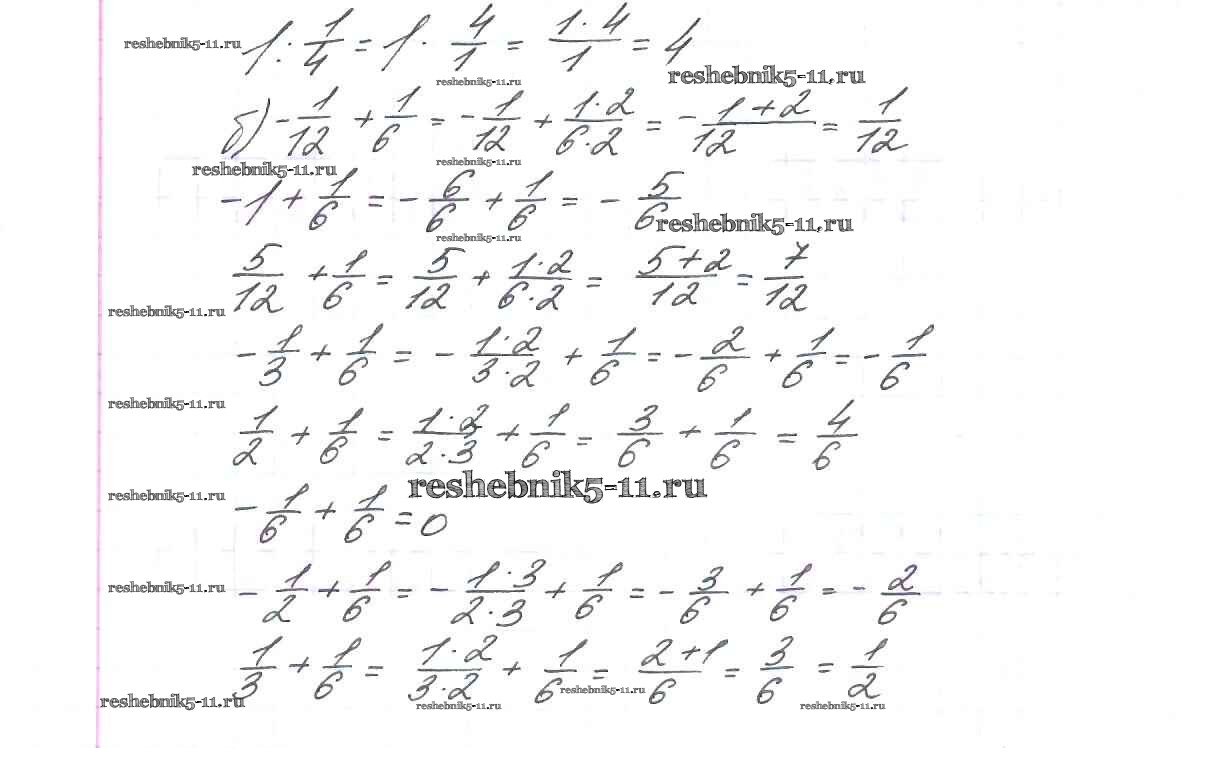 reshebnik5-11.ru 1 : 1/4 = 1 · 4/1 = (1 · 4)/1 = 4
reshebnik5-11.ru reshebnik5-11.ru
б) -1/12 + 1/6 = -1/12 + (1·2)/(6·2) = -(1+2)/12 = 1/12
reshebnik5-11.ru reshebnik5-11.ru
-1 + 1/6 = -6/6 + 1/6 = -5/6 reshebnik5-11.ru
reshebnik5-11.ru
5/12 + 1/6 = 5/12 + (1·2)/(6·2) = (5+2)/12 = 7/12
reshebnik5-11.ru
-1/3 + 1/6 = -(1·2)/(3·2) + 1/6 = -2/6 + 1/6 = -1/6
reshebnik5-11.ru
1/2 + 1/6 = (1·2)/(2·3) + 1/6 = 3/6 + 1/6 = 4/6
reshebnik5-11.ru reshebnik5-11.ru
-1/6 + 1/6 = 0
reshebnik5-11.ru -1/2 + 1/6 = -(1·3)/(2·3) + 1/6 = -3/6 + 1/6 = -2/6
1/3 + 1/6 = (1·2)/(3·2) + 1/6 = (2+1)/6 = 3/6 = 1/2
reshebnik5-11.ru reshebnik5-11.ru reshebnik5-11.ru reshebnik5-11.ru